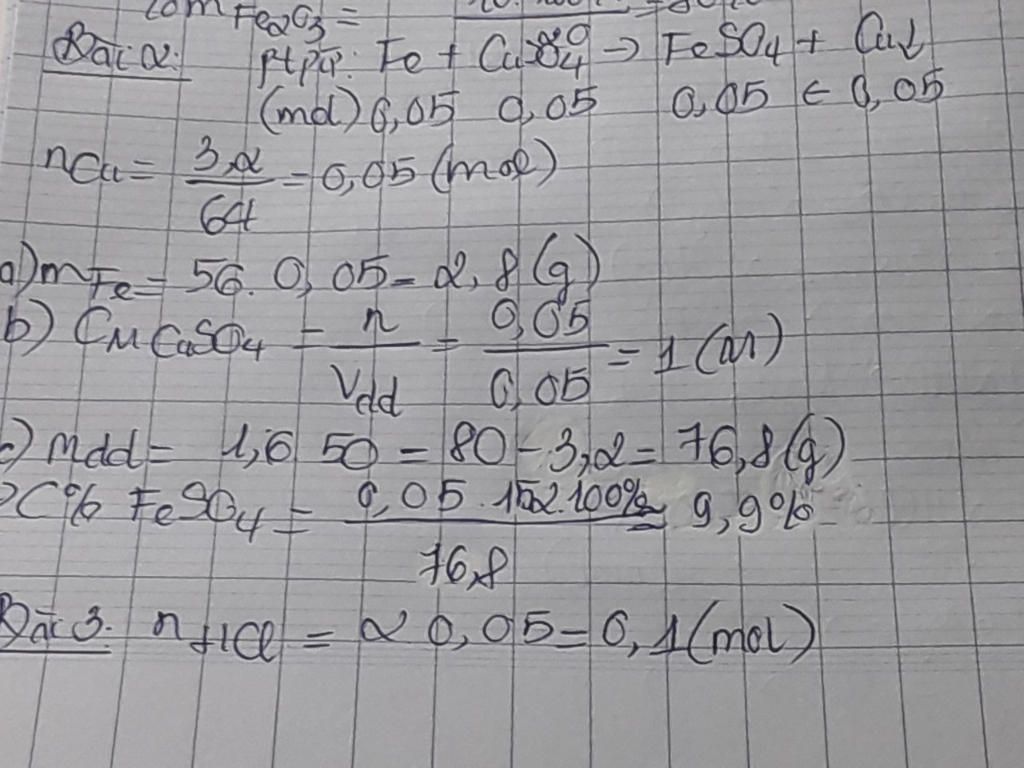 m Fe2O3 =
Bài 2: ptpứ: Fe + CuSO4 → FeSO4 + Cu↓
(mol) 0,05 0,05 0,05 ← 0,05
nCu = 3,2/64 = 0,05 (mol)
a) mFe = 56. 0,05 = 2,8 (g)
b) CM CuSO4 = n/Vdd = 0,05/0,05 = 1 (M)
c) mdd = 1,6 50 = 80 - 3,2 = 76,8 (g)
C% FeSO4 = 0,05.152.100%/76,8 = 9,9%
Bài 3: nHCl = 2 0,05 = 0,1 (mol)